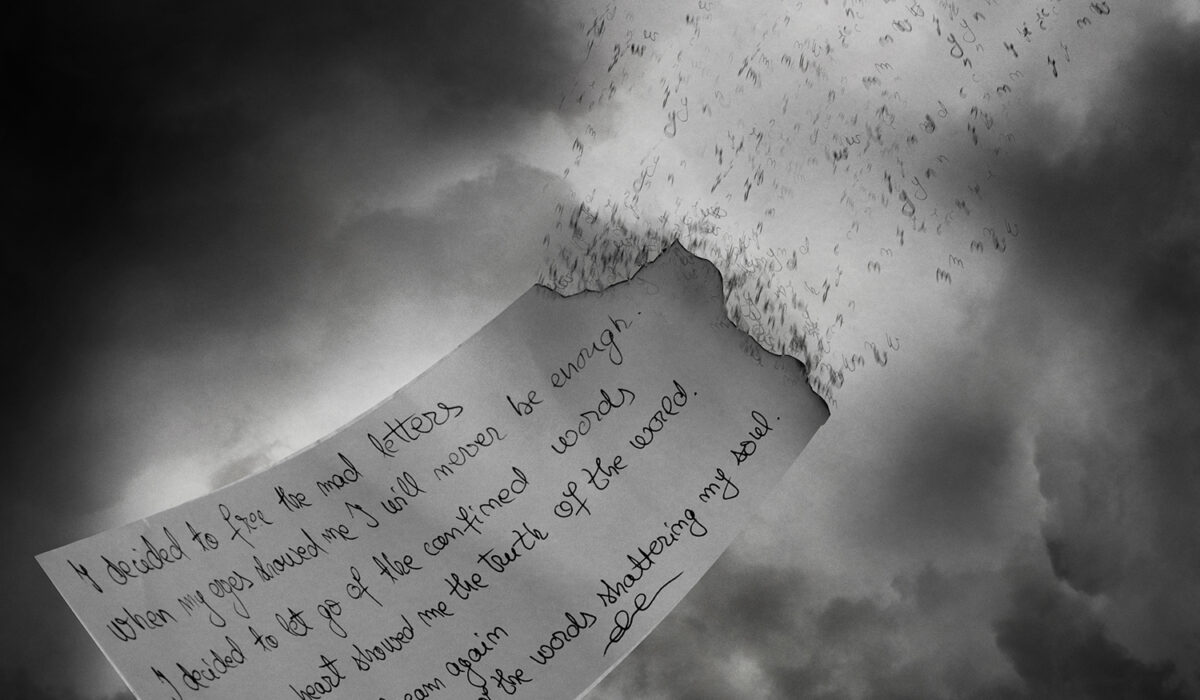 I decided to free the mad letters
when my eyes showed me I will never be enough.
I decided to let go of the confined words
heart showed me the truth of the world.
again
the words shattering my soul.